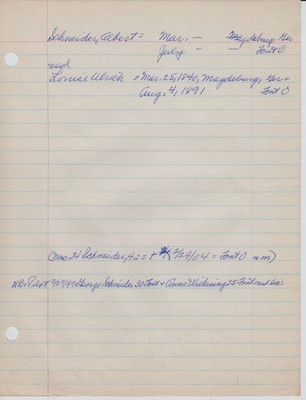 Schneider, Albert = Mar. — Magdeburg Ger
July — Font O
and
Louise Ulrich = Mar. 25, 1840, Magdeburg, Ger -
Aug. 4, 1891 Font O
(Cme 34 Schneider, A 2 = + 2/24/04 = Font O n m)
NB: Pilot 3/27/47 George Schneider 30 Font + Anna Wickening 25 Font